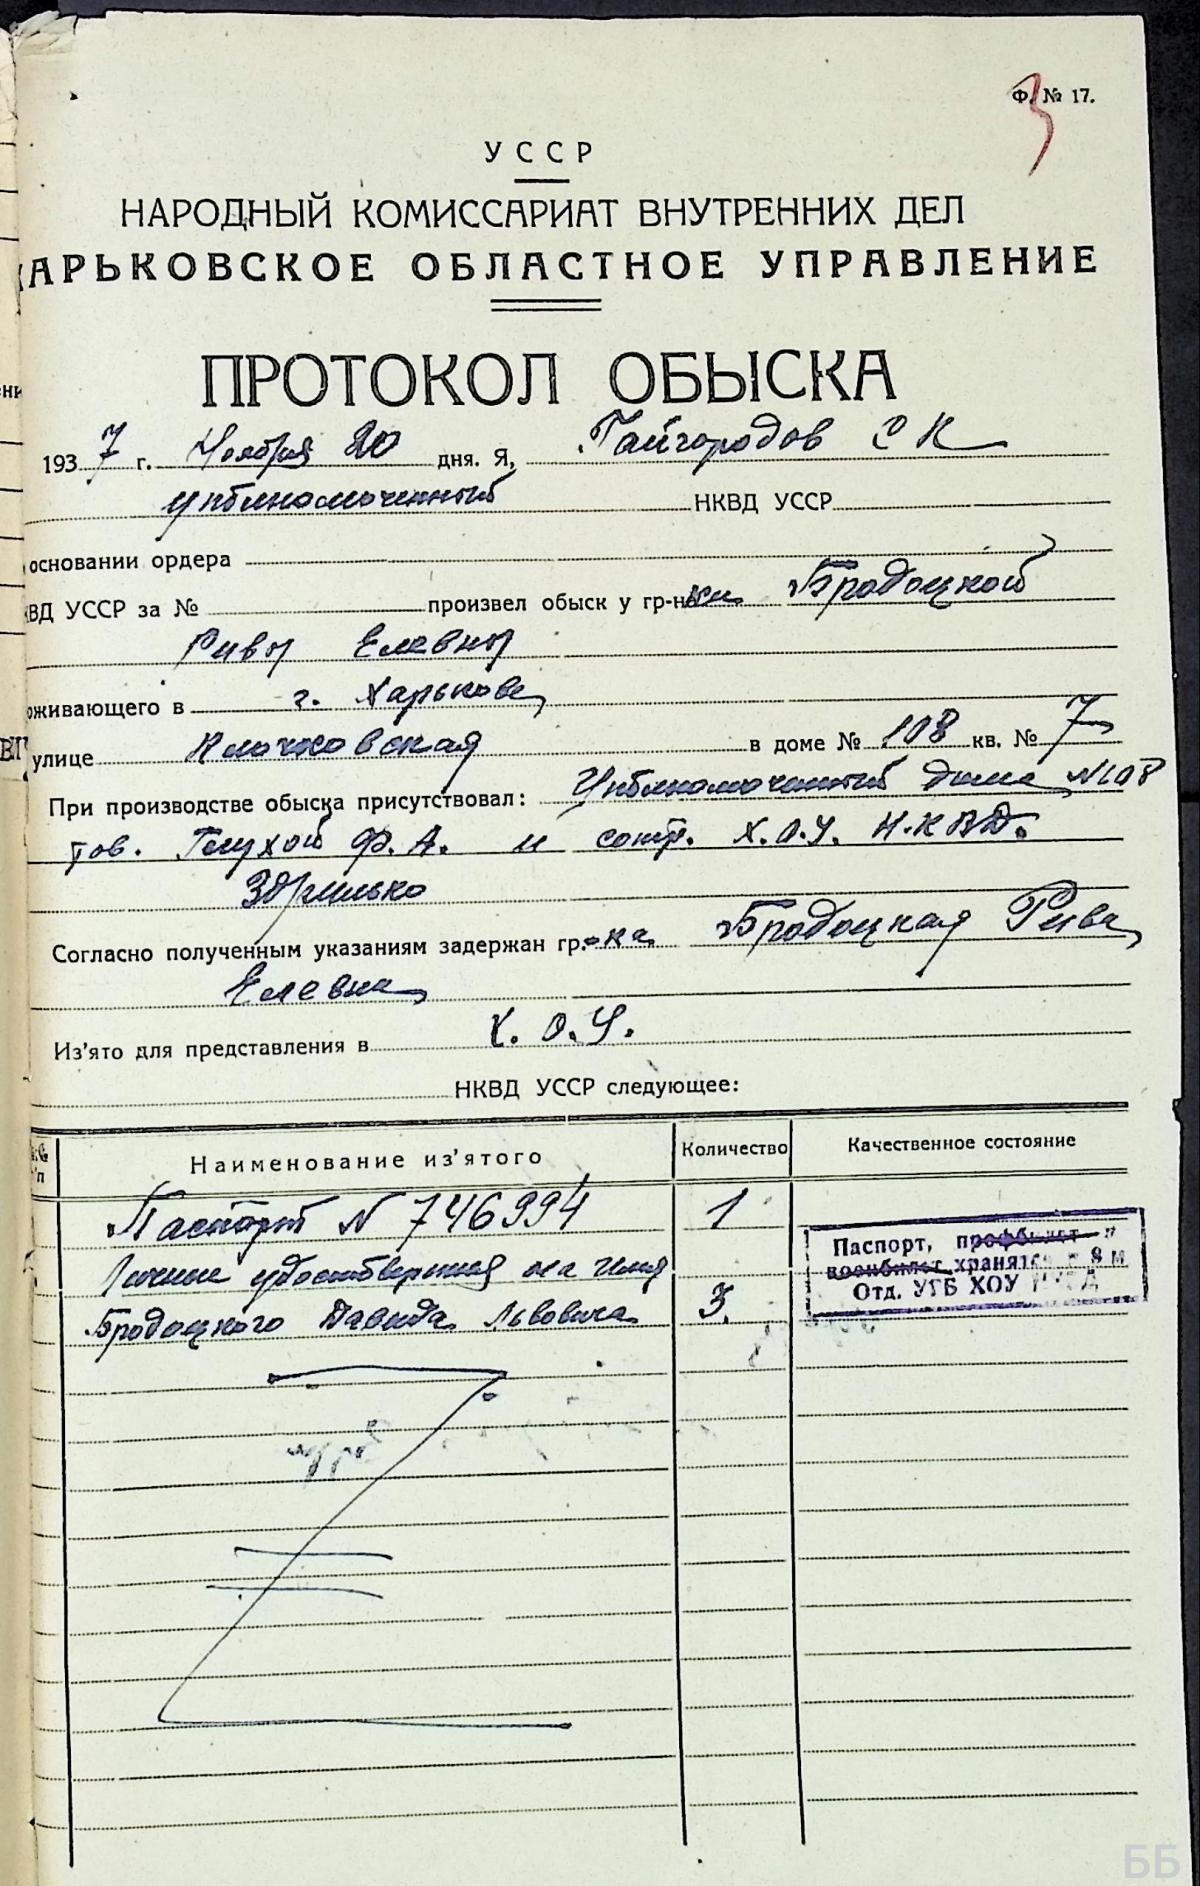 Ф. № 17.
3
УССР
НАРОДНЫЙ КОМИССАРИАТ ВНУТРЕННИХ ДЕЛ
АРЬКОВСКОЕ ОБЛАСТНОЕ УПРАВЛЕНИЕ
ПРОТОКОЛ ОБЫСКА
1937 г. Ноября 20 дня. Я, Гайгородов С К
уполномоченный НКВД УССР
основании ордера
ВД УССР за № произвел обыск у гр-на ки Бродоцкой
Ривы Елевны
оживающего в г. Харькове
улице Клочковская в доме № 108 кв. № 7
При производстве обыска присутствовал: Уполномоченный дома N 108
тов. Глухой Ф. А. и сотр. Х.О.У. Н.К.В.Д.
Согласно полученным указаниям задержан гр.-ка Бродоцкая Рива
Елевна
Из'ято для представления в Х. О. У.
НКВД УССР следующее:
п Наименование из'ятого Количество Качественное состояние
Паспорт N 746994 1
Личные удостоверения на имя
Бродоцкого Давида Львовича 3.
Паспорт, профбилет и
военбилет хранятся в 8 м
Отд. УГБ ХОУ НКВД
ББ